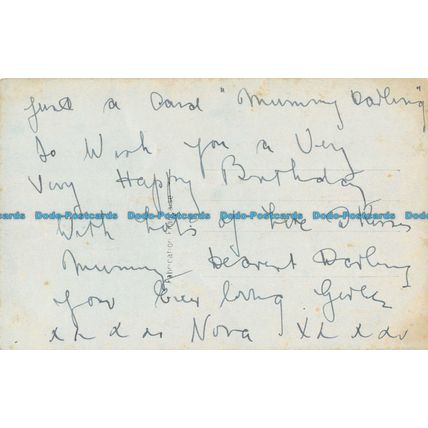 Just a Card "Mummy Darling"
To Wish you a Very
Very Happy Birthday
Dodo-Postcards Dodo-Postcards Dodo-Postcards Dodo-Postcards Dodo-Postcards
With Lots of Love & Kisses
Mummy Dearest Darling
Your Ever loving Girlie
x x x x Nova x x x x